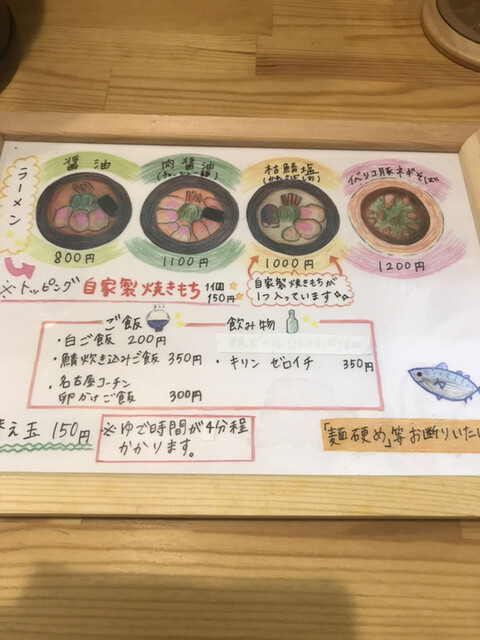 ラーメン
醤油
800円
肉醤油
1100円
枯鯖塩
1000円
イベリコ豚ネギそば
1200円
※トッピング 自家製焼きもち 1個 150円
自家製焼きもちが
1つ入っています
ご飯
・白ご飯 200円
・鯖炊き込みご飯 350円
・名古屋コーチン
卵かけご飯 300円
飲み物
・キリン ゼロイチ 350円
え玉 150円
※ゆで時間が4分程
かかります。
「麺硬め」等お断りいた